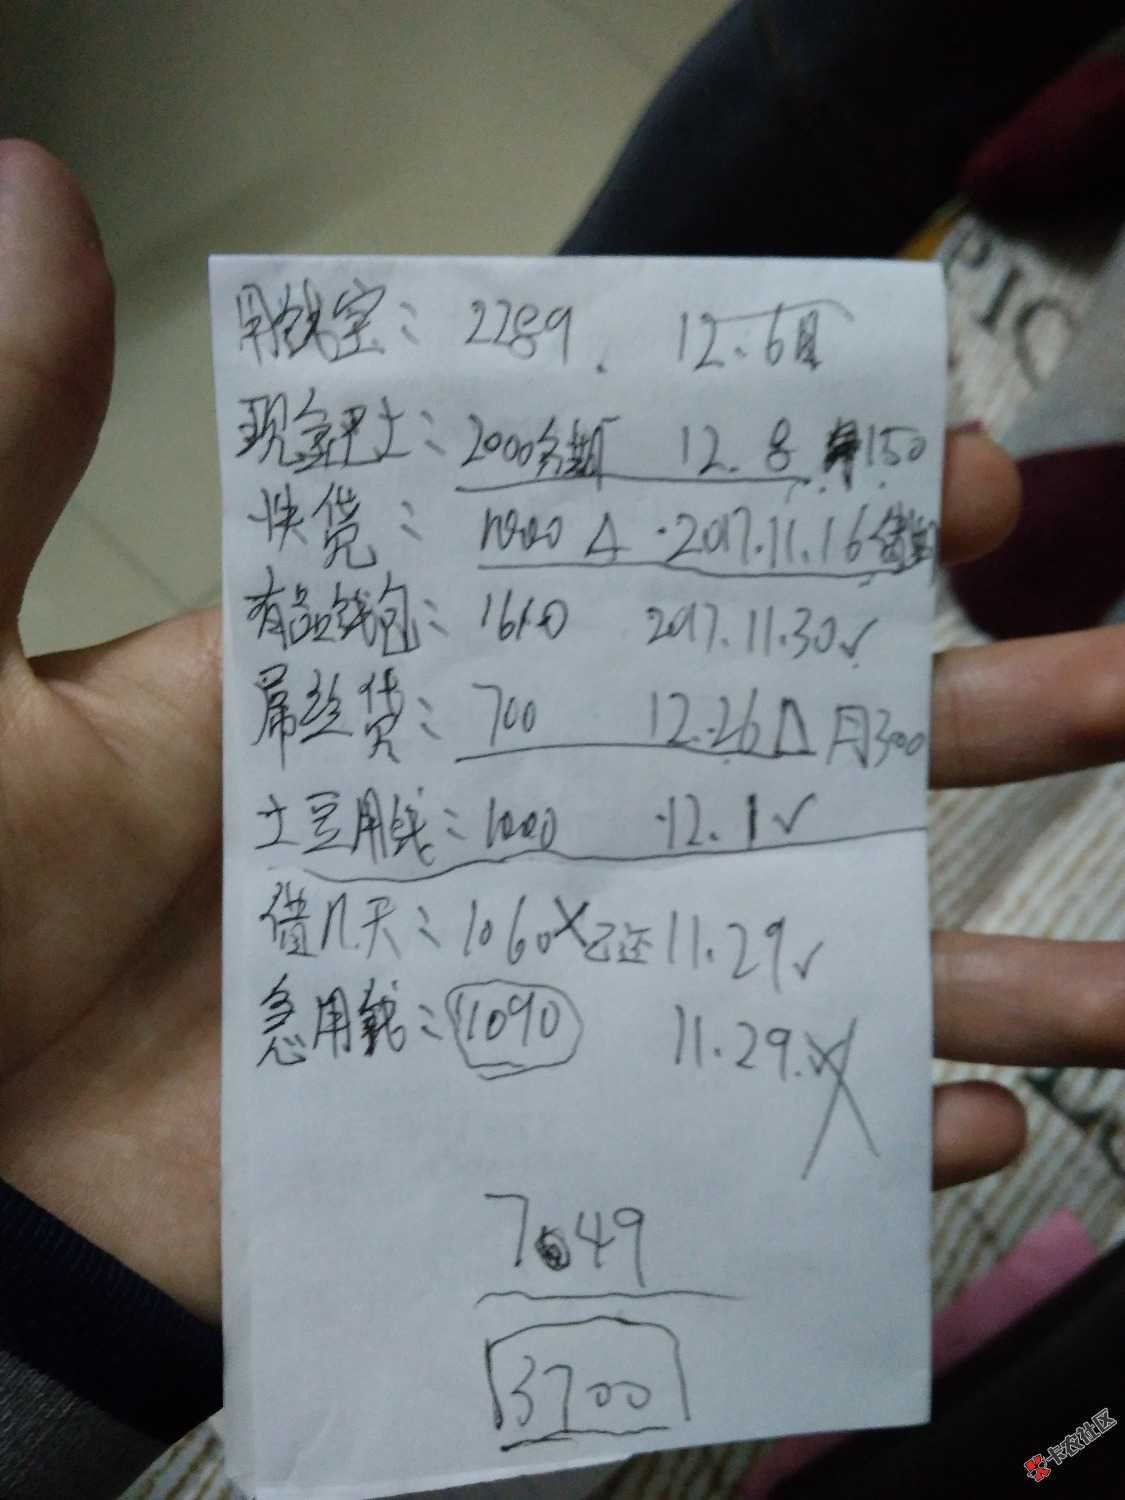 用钱宝: 2289. 12.6
现金巴士: 2000分期 12.8 150
快贷: 1000 △ ·2017.11.16
有品钱包: 1610 2017.11.30✓
屌丝贷: 700 12.26△ 月300
土豆用钱: 1000 ·12.1✓
借几天: 1060X已还 11.29✓
急用钱: 1090 11.29.X
7 49
3700
PIC
卡农社区